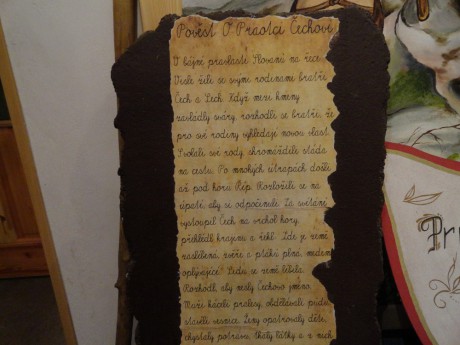 Pověst O Praotci Čechovi
V bájné pravlasti Slovanů na řece
Visle žili se svými rodinami bratři
Čech a Lech. Když mezi kmeny
zavládly sváry, rozhodli se bratři, že
pro své rodiny vyhledají novou vlast.
Svolali své rody, shromáždili stáda
na cestu. Po mnohých útrapách došli
až pod horu Říp. Rozložili se na
úpatí, aby si odpočinuli. Za svítání
vystoupil Čech na vrchol hory,
přehlédl krajinu a řekl: "Zde je země
zaslíbená, zvěře a ptáků plná, medem
oplývající." Lidu se země líbila.
Rozhodli, aby nesly Čechovo jméno.
Muži káceli pralesy, obdělávali půdu,
stavěli vesnice. Ženy opatrovaly děti,
chystaly potravu, tkaly látky a z nich
Pr